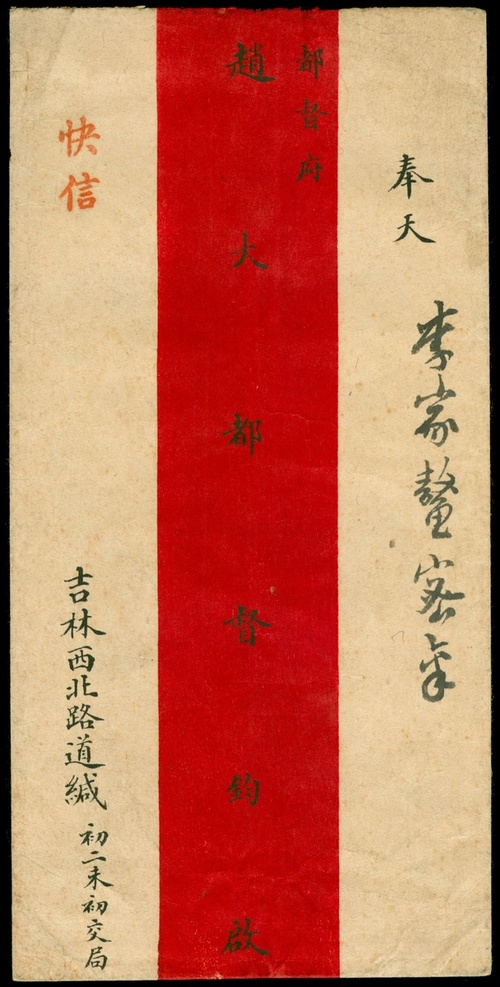 奉天
李家鏊密
都督府
趙大都督鈞啟
快信
吉林西北路道緘 初二未初交局